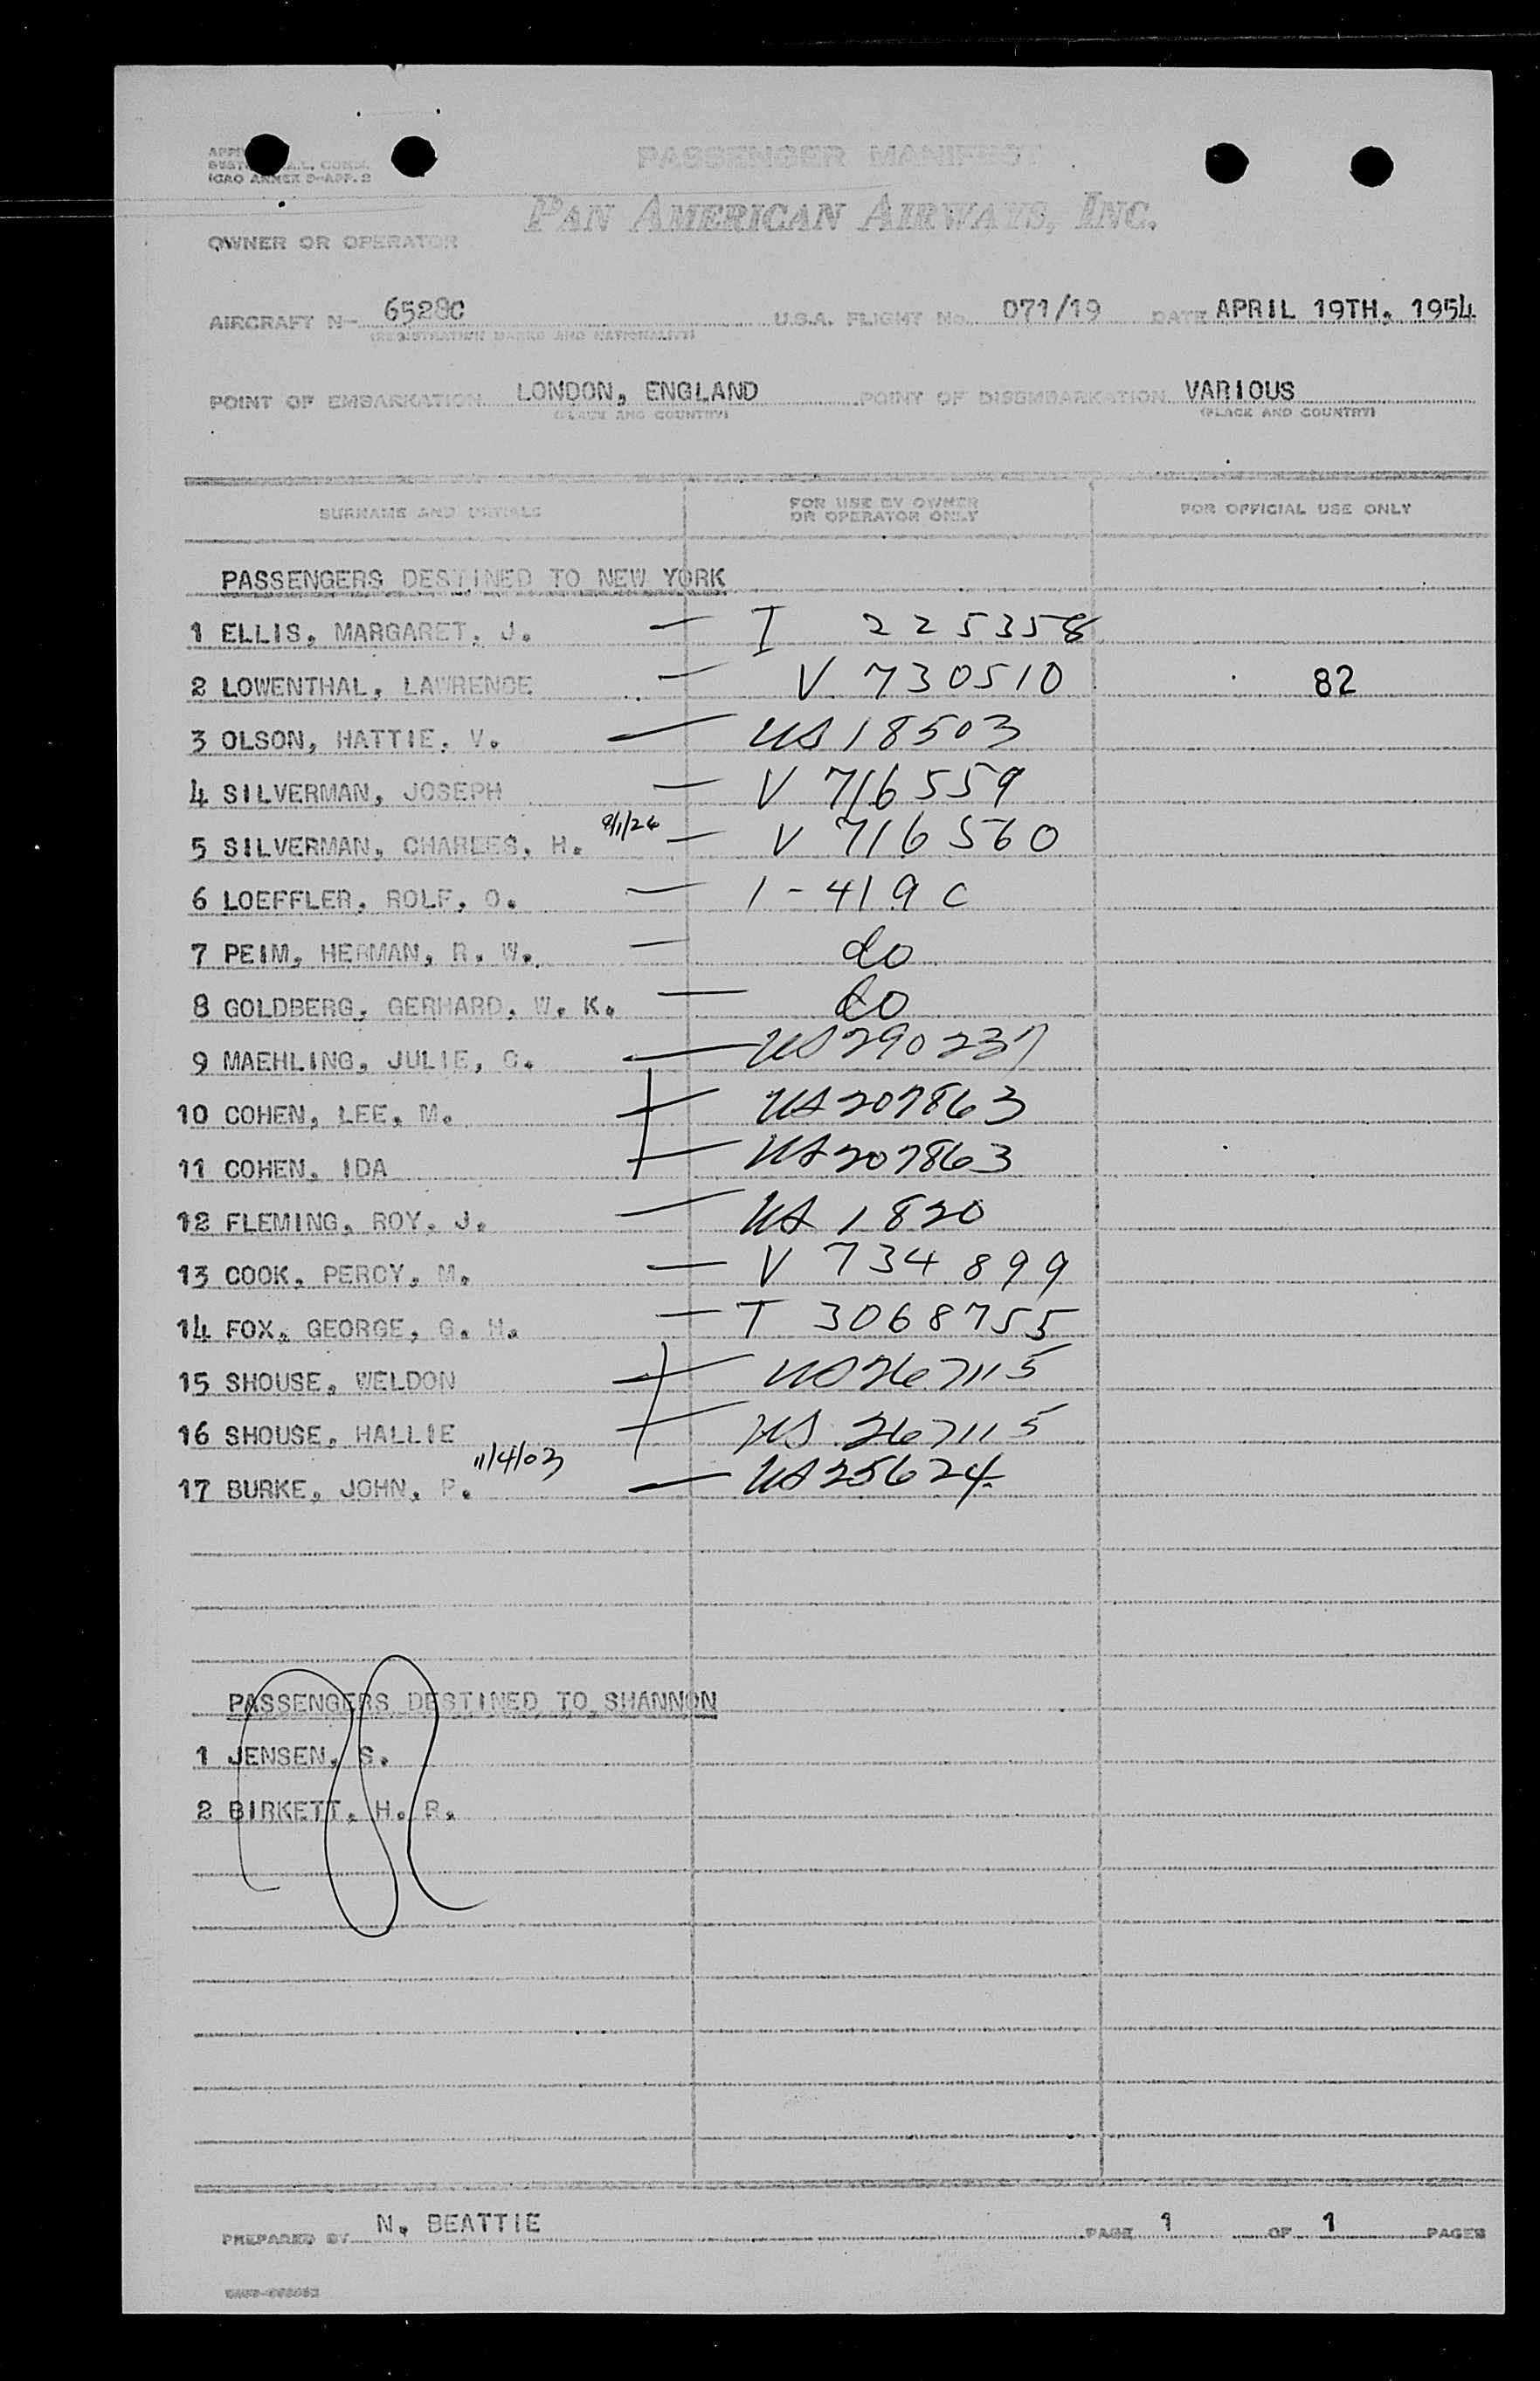 PASSENGER MANIFEST
(CAO ANNEX 9-APP. 2
PAN AMERICAN AIRWAYS, INC.
OWNER OR OPERATOR
AIRCRAFT N- 6528C U.S.A. FLIGHT No. 071/19 DATE APRIL 19TH, 1954
(REGISTRATION MARKS AND NATIONALITY)
POINT OF EMBARKATION LONDON, ENGLAND POINT OF DISEMBARKATION VARIOUS
(PLACE AND COUNTRY) (PLACE AND COUNTRY)
SURNAME AND INITIALS FOR USE BY OWNER OR OPERATOR ONLY FOR OFFICIAL USE ONLY
PASSENGERS DESTINED TO NEW YORK
1 ELLIS, MARGARET, J. — I 225358
2 LOWENTHAL, LAWRENCE — V 730510 82
3 OLSON, HATTIE, V. — US 18503
4 SILVERMAN, JOSEPH — V 716559
5 SILVERMAN, CHARLES, H. — V 716560
6 LOEFFLER, ROLF, O. — 1-419 C
7 PEIM, HERMAN, R. W. — do
8 GOLDBERG, GERHARD, W. K. — do
9 MAEHLING, JULIE, C. — US 290237
10 COHEN, LEE, M. — US 207863
11 COHEN, IDA — US 207863
12 FLEMING, ROY, J. — US 1820
13 COOK, PERCY, M. — V 734899
14 FOX, GEORGE, G. H. — T 3068755
15 SHOUSE, WELDON — US 267115
16 SHOUSE, HALLIE — US 267115
11/4/03
17 BURKE, JOHN, P. — US 25624
PASSENGERS DESTINED TO SHANNON
1 JENSEN, S.
2 BIRKETT, H. R.
PREPARED BY N. BEATTIE PAGE 1 OF 1 PAGES